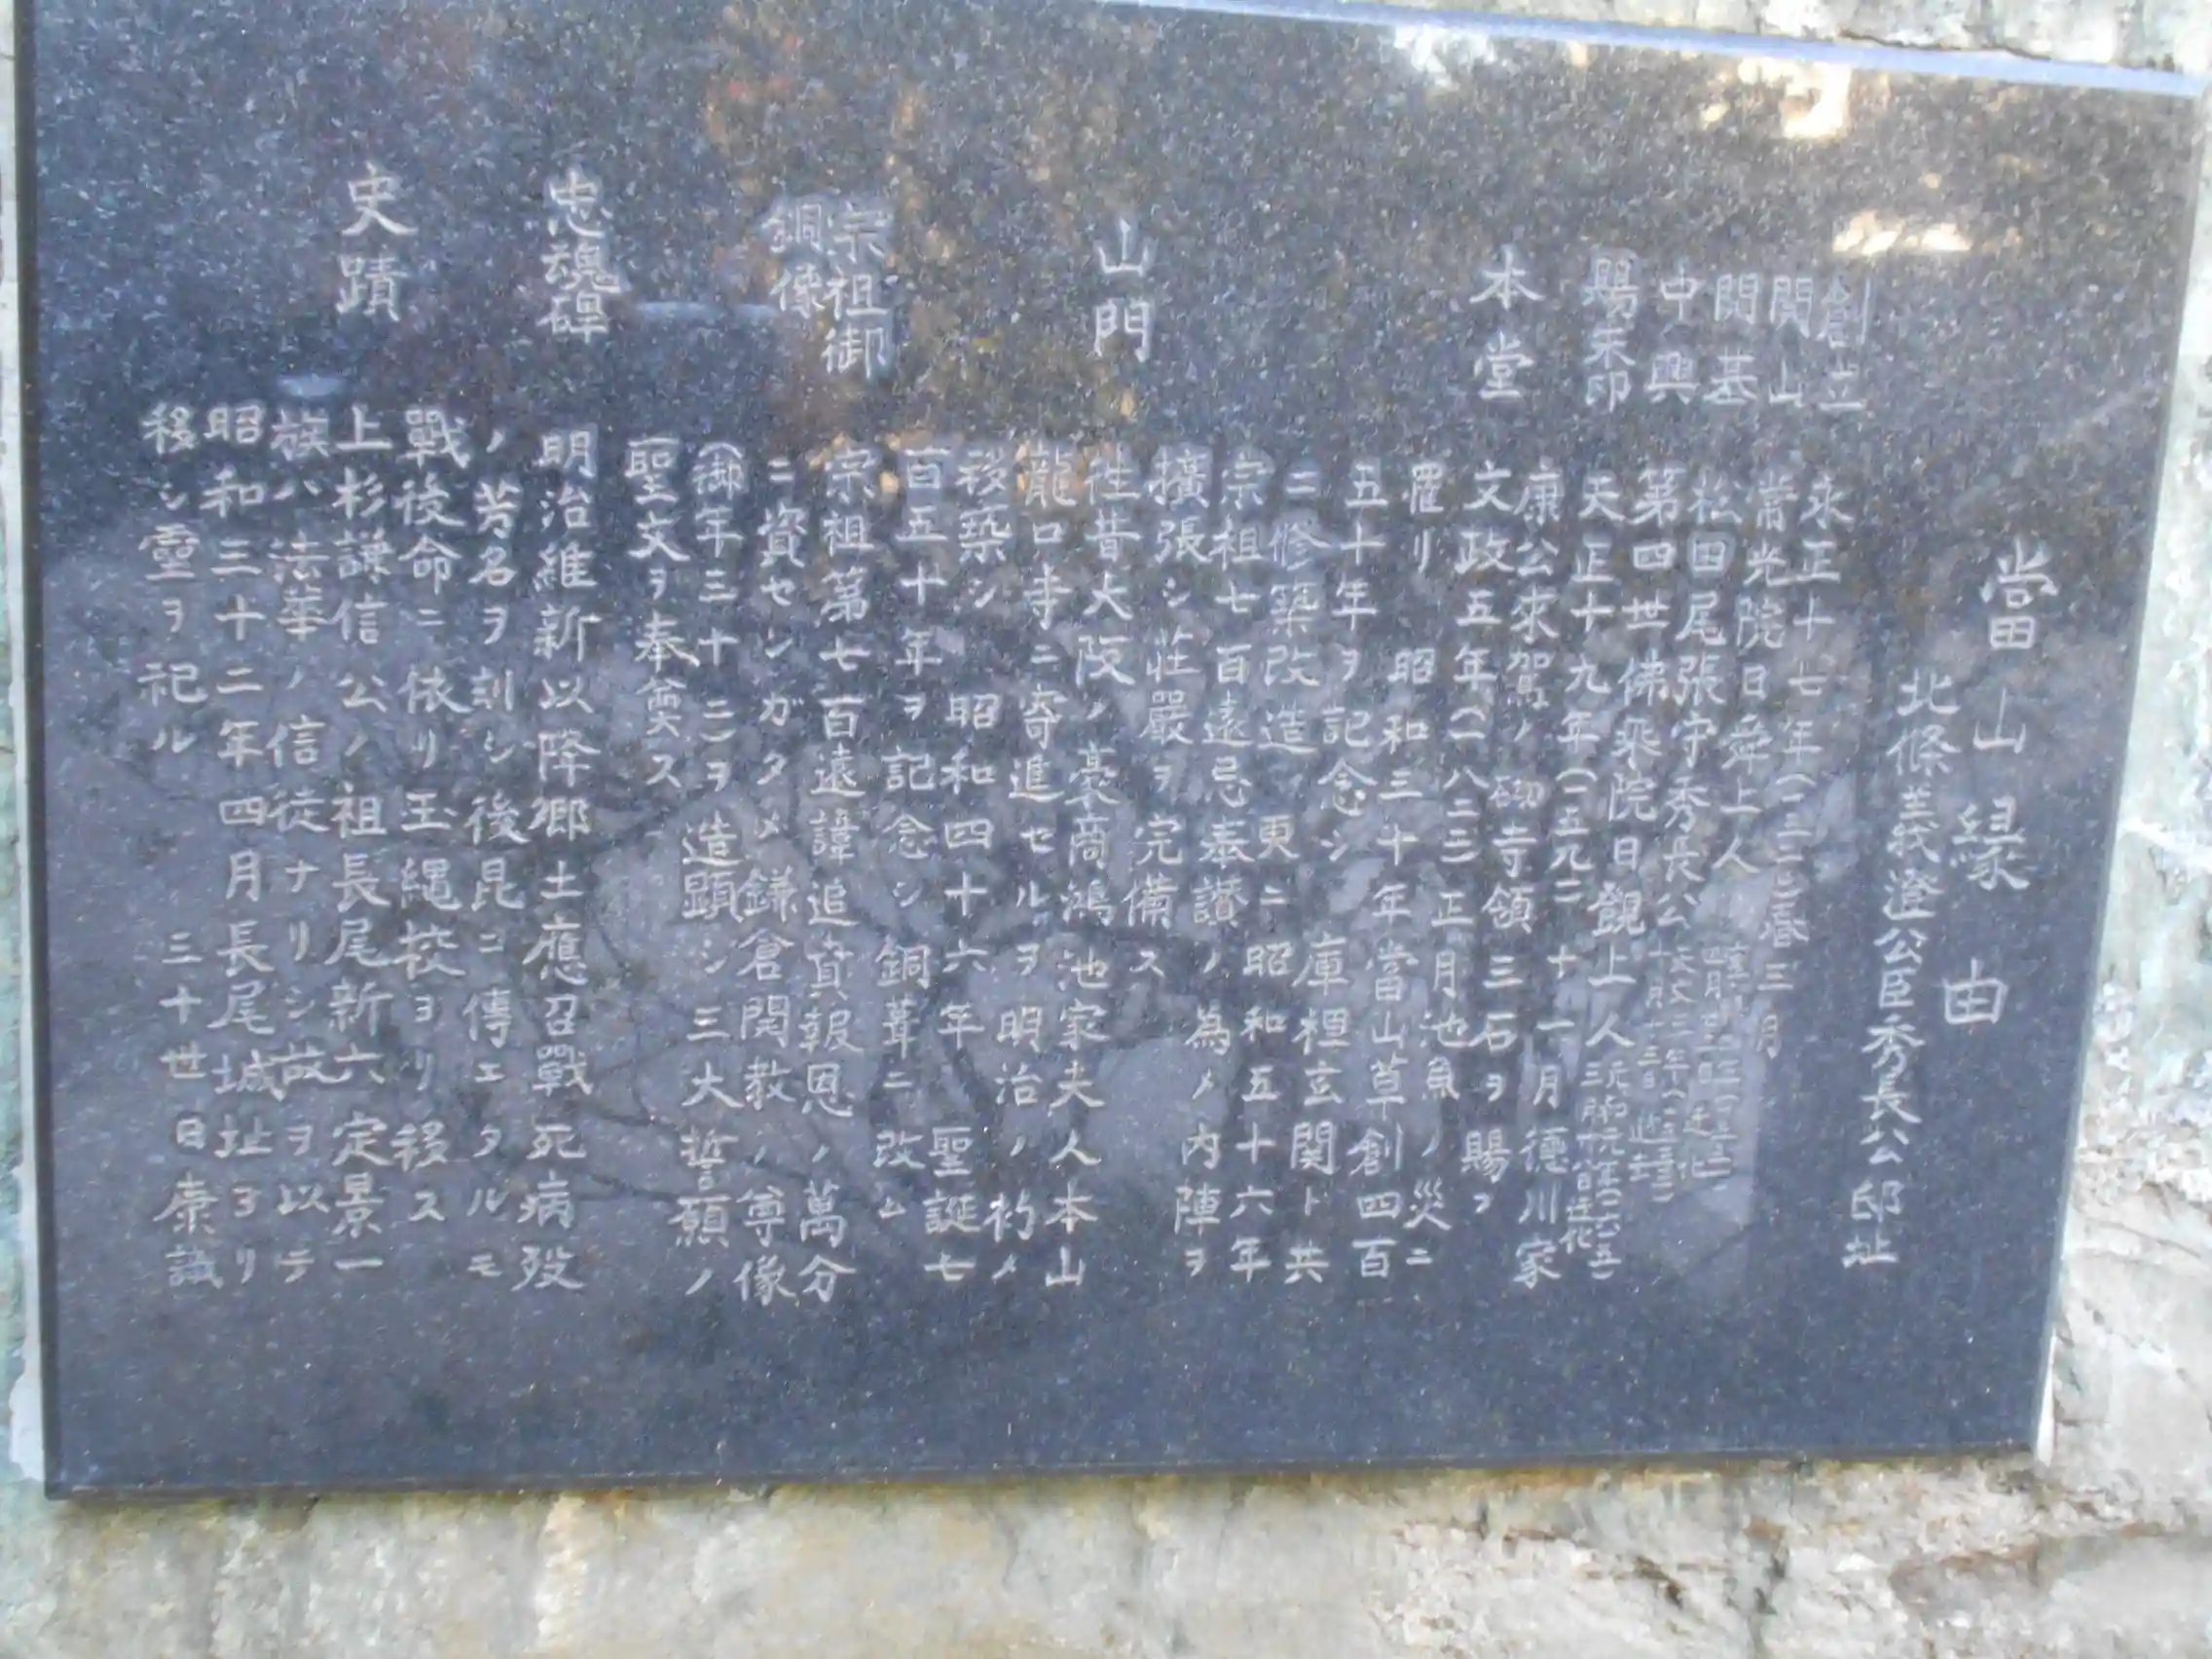 當山縁由
北條義澄公臣秀長公邸址
創立 永正十七年(一五二〇)春三月
開山 常光院日舜上人
開基 松田尾張守秀長公 天文二年(一五三三)十月十三日逝去
中興 第四世佛乗院日観上人
賜朱印 天正十九年(一五九一)十一月德川家
康公來駕ノ砌寺領三石ヲ賜フ
本堂 文政五年(一八二二)正月池魚ノ災ニ
罹リ 昭和三十年當山草創四百
五十年ヲ記念シ 庫裡玄関ト共
ニ修築改造 更ニ昭和五十六年
宗祖七百遠忌奉讃ノ為メ内陣ヲ
擴張シ 荘嚴ヲ完備ス
山門 往昔大阪ノ豪商鴻池家夫人本山
龍口寺ニ寄進セルヲ明治ノ初メ
移築シ 昭和四十六年 聖誕七
百五十年ヲ記念シ 銅葺ニ改ム
宗祖御銅像 宗祖第七百遠諱追貢報恩ノ萬分
ニ資センガタメ鎌倉開教ノ尊像
(御年三十二)ヲ造顕シ三大誓願ノ
聖文ヲ奉龠ス
忠魂碑 明治維新以降郷土應召戰死病歿
ノ芳名ヲ刻シ後昆ニ傳エタルモ
戰後命ニ依リ玉縄校ヨリ移ス
史蹟 上杉謙信公ノ祖長尾新六定景一
族ハ法華ノ信徒ナリシ故ヲ以テ
昭和三十二年四月長尾城址ヨリ
移シ霊ヲ祀ル 三十世日康識